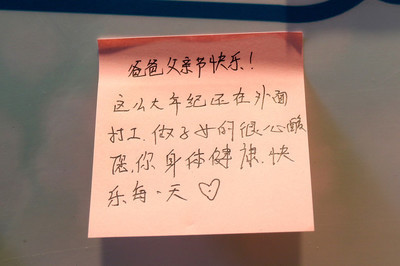 爸爸父亲节快乐！
这么大年纪还在外面
打工.做子女的很心酸
愿你身体健康.快
乐每一天♡